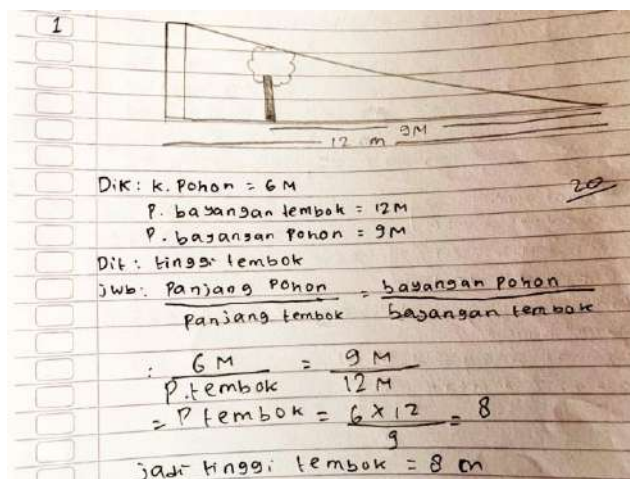 1
9M
12 m
Dik: k. Pohon = 6 M
20
P. bayangan tembok = 12M
P. bayangan Pohon = 9M
Dit: tinggi tembok
jwb: Panjang Pohon = bayangan Pohon
Panjang tembok bayangan tembok
: 6 M = 9 M
P. tembok 12 M
= P tembok = 6 X 12 = 8
9
jadi tinggi tembok = 8 m